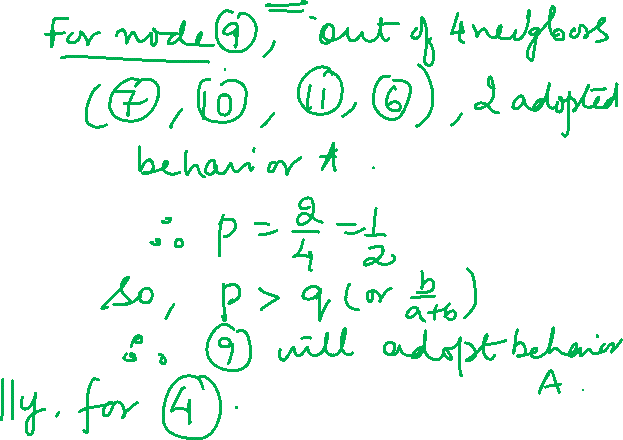 For node 9, out of 4 neigbors
(7, 10, 11, 6), 2 adopted
behavior A.
∴ p = 2/4 = 1/2
So, p > q (or b/a+b)
∴ 9 will adopt behavior
A.
lly, for 4.